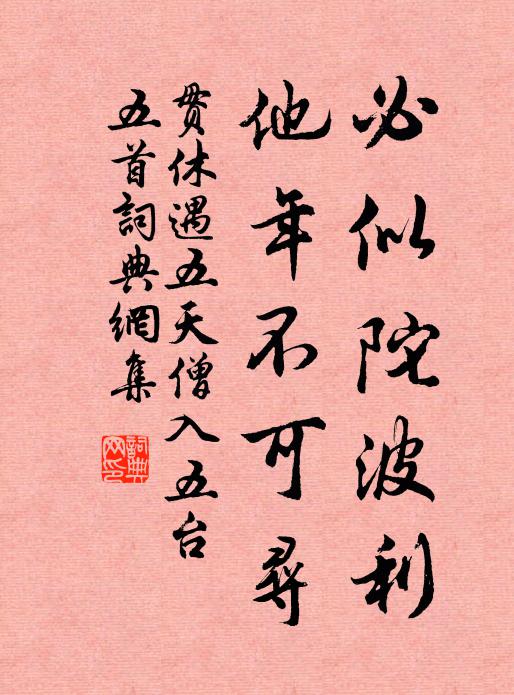 必似陀波利
他年不可尋
貫休遇五天僧入五台
五首詞典網集
詞典网印